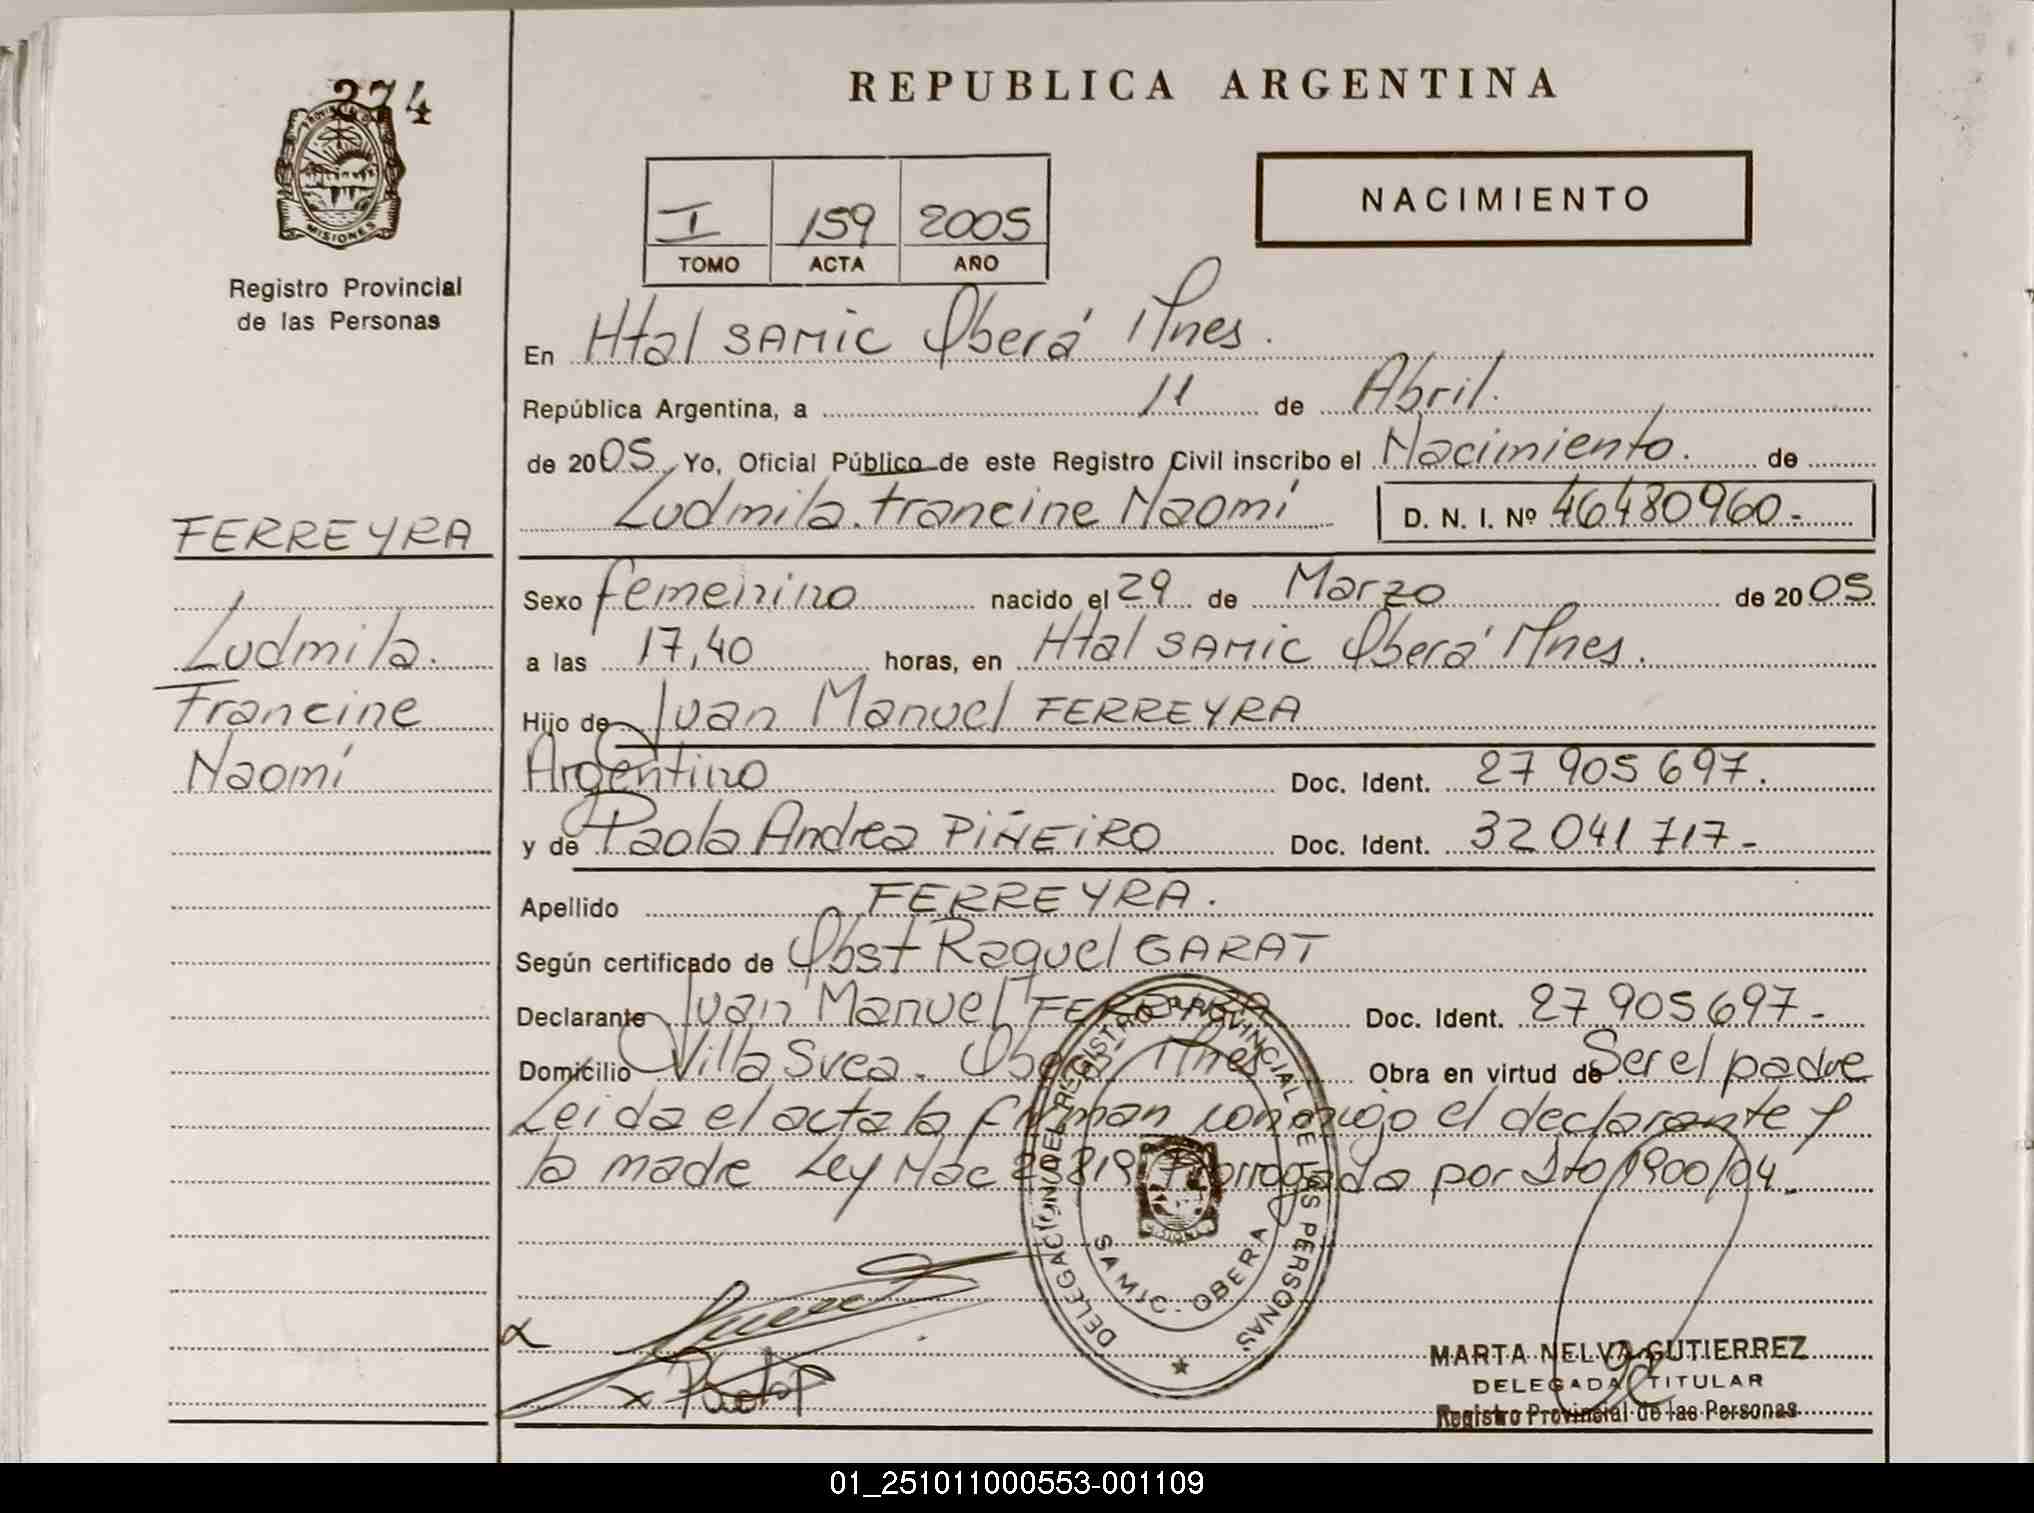 REPUBLICA ARGENTINA
274
PROVINCIA DE
MISIONES
Registro Provincial
de las Personas
NACIMIENTO
I 159 2005
TOMO ACTA AÑO
En Htal SAMIC Oberá Mnes.
República Argentina, a 11 de Abril.
de 2005. Yo, Oficial Público de este Registro Civil inscribo el Nacimiento. de
Ludmila Francine Naomí D. N. I. Nº 46480960-
FERREYRA
Ludmila.
Francine
Naomí
Sexo femenino nacido el 29 de Marzo de 2005
a las 17,40 horas, en Htal SAMIC Oberá Mnes.
Hijo de Juan Manuel FERREYRA
Argentino Doc. Ident. 27 905 697.
y de Paola Andrea PIÑEIRO Doc. Ident. 32 041 717-
Apellido FERREYRA.
Según certificado de Obst Raquel GARAT
Declarante Juan Manuel FERREYRA Doc. Ident. 27 905 697-
Domicilio Villa Svea. Oberá Mnes Obra en virtud de Ser el padre
Leida el acta la firman conmigo el declarante y
la madre Ley Nac 25819 Prorrogada por Dto 1900/04-
DELEGACION DEL REGISTRO PROVINCIAL DE LAS PERSONAS
SAMIC - OBERA
MARTA NELVA GUTIERREZ
DELEGADA TITULAR
Registro Provincial de las Personas
01_251011000553-001109